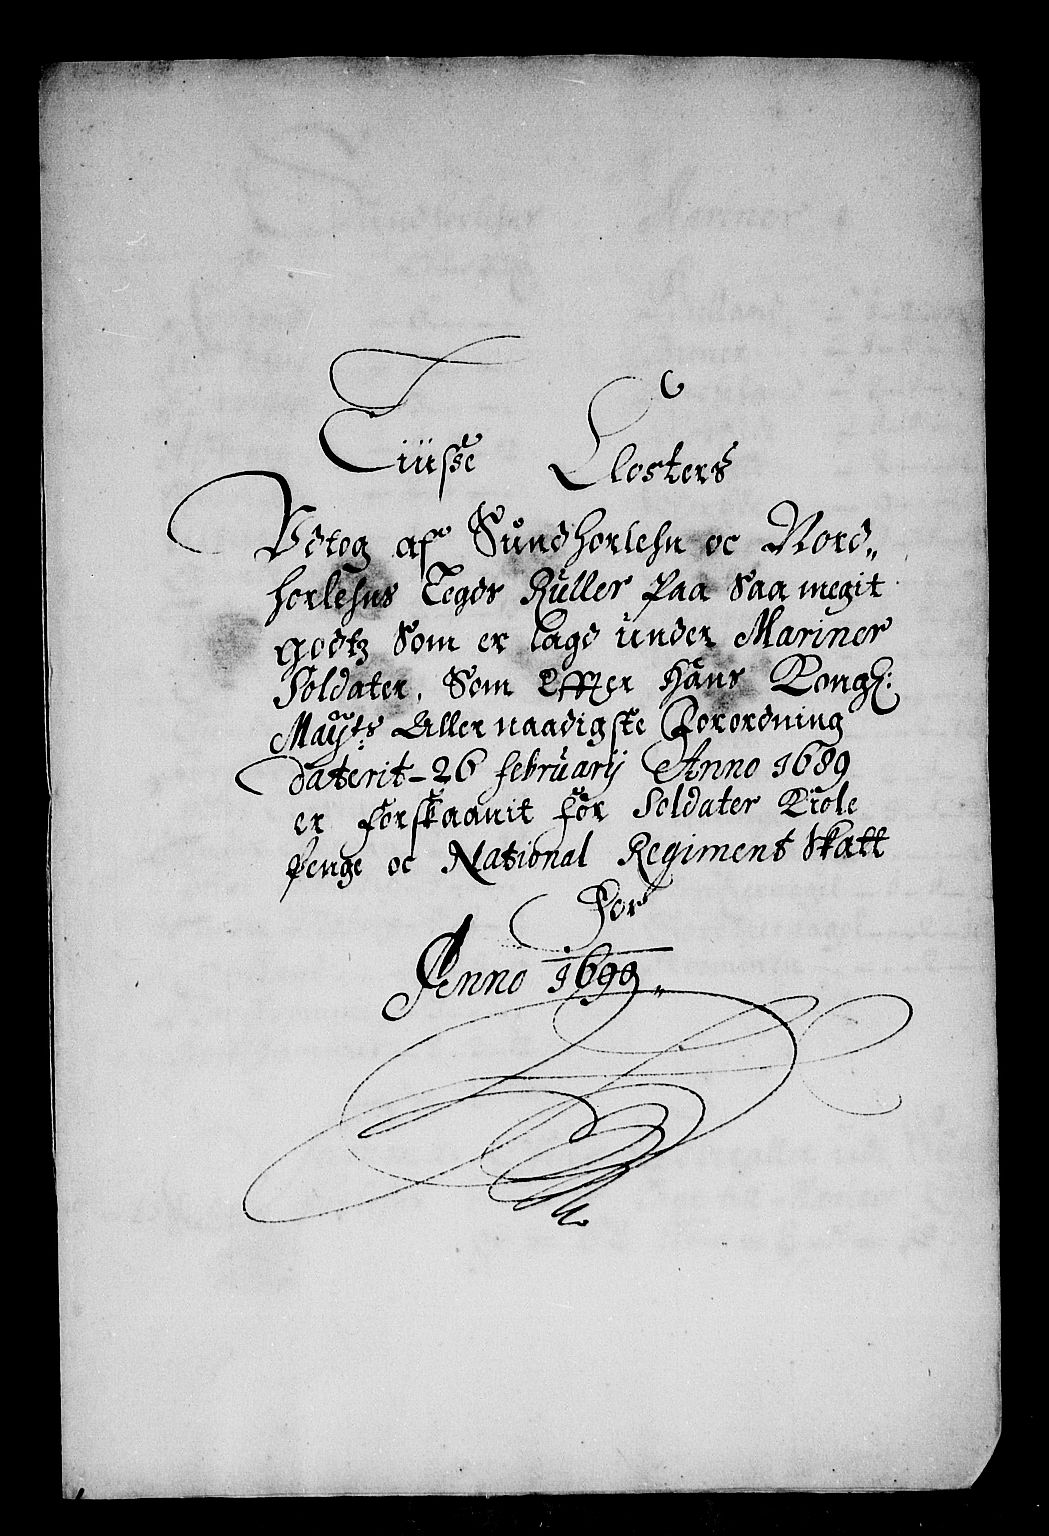 Liüsse Closters
Vdtog af Sundhorlehn oc Nord„
horlehns Legds Ruller paa Saa megit
godtz Som er lagd under Mariner
Soldater, Som Effter Hans Kongl:
Mayts Aller naadigste Forordning
daterit 26 february Anno 1689
er forskaanit for Soldater Kiole
penge oc National Regiment Skatt
For
Anno 1699„